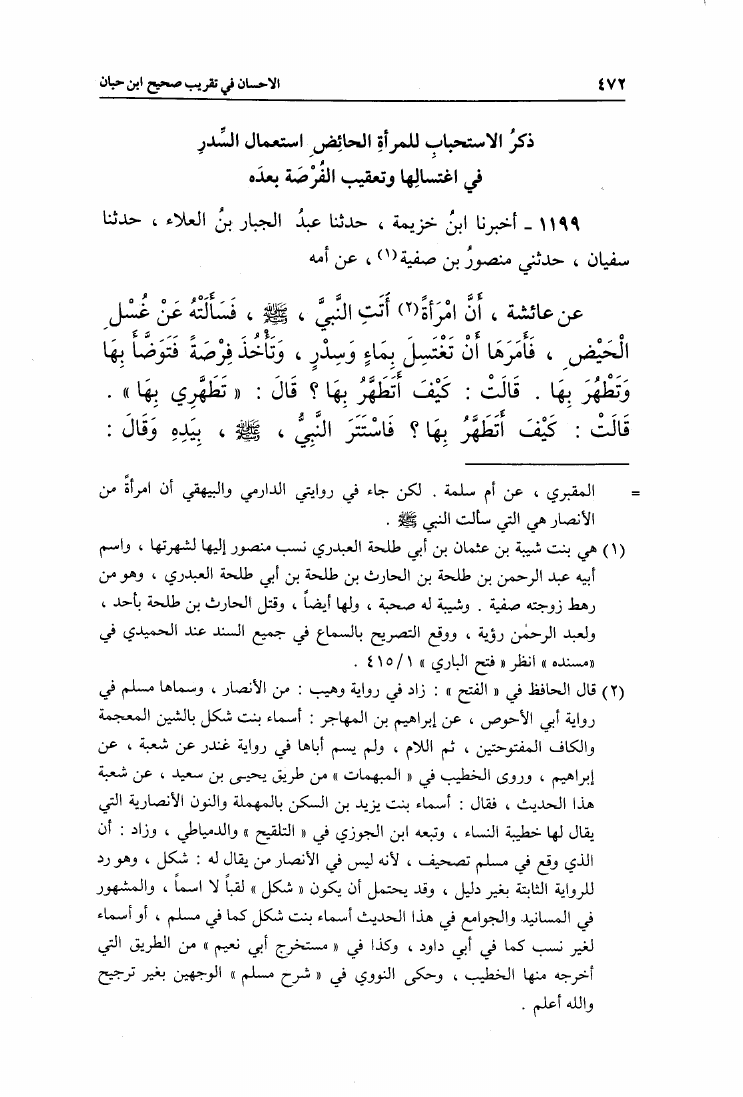 ٤٧٢ الاحسان في تقريب صحيح ابن حبان
ذكرُ الاستحبابِ للمرأةِ الحائِضِ استعمالَ السِّدرِ
في اغتسالِها وتعقيب الفُرْصَة بعدَه
١١٩٩ - أخبرنا ابنُ خزيمة ، حدثنا عبدُ الجبار بنُ العلاء ، حدثنا
سفيان ، حدثني منصورُ بن صفية(١) ، عن أمه
عن عائشة ، أَنَّ امْرَأةً(٢) أَتَتِ النَّبِيَّ ، ﷺ ، فَسَأَلَتْهُ عَنْ غُسْلِ
الْحَيْضِ ، فَأَمَرَهَا أَنْ تَغْتَسِلَ بِمَاءٍ وَسِدْرٍ ، وَتَأْخُذَ فِرْصَةً فَتَوَضَّأَ بِهَا
وَتَطْهُرَ بِهَا . قَالَتْ : كَيْفَ أَتَطَهَّرُ بِهَا ؟ قَالَ : « تَطَهَّرِي بِهَا » .
قَالَتْ : كَيْفَ أَتَطَهَّرُ بِهَا ؟ فَاسْتَتَرَ النَّبِيُّ ، ﷺ ، بِيَدِهِ وَقَالَ :
= المقبري ، عن أم سلمة . لكن جاء في روايتي الدارمي والبيهقي أن امرأةً من
الأنصار هي التي سألت النبي ﷺ .
(١) هي بنت شيبة بن عثمان بن أبي طلحة العبدري نسب منصور إليها لشهرتها ، واسم
أبيه عبد الرحمن بن طلحة بن الحارث بن طلحة بن أبي طلحة العبدري ، وهو من
رهط زوجته صفية . وشيبة له صحبة ، ولها أيضاً ، وقتل الحارث بن طلحة بأحد ،
ولعبد الرحمٰن رؤية ، ووقع التصريح بالسماع في جميع السند عند الحميدي في
«مسنده» انظر « فتح الباري » ٤١٥/١ .
(٢) قال الحافظ في « الفتح » : زاد في رواية وهيب : من الأنصار ، وسماها مسلم في
رواية أبي الأحوص ، عن إبراهيم بن المهاجر : أسماء بنت شكل بالشين المعجمة
والكاف المفتوحتين ، ثم اللام ، ولم يسم أباها في رواية غندر عن شعبة ، عن
إبراهيم ، وروى الخطيب في « المبهمات » من طريق يحيى بن سعيد ، عن شعبة
هذا الحديث ، فقال : أسماء بنت يزيد بن السكن بالمهملة والنون الأنصارية التي
يقال لها خطيبة النساء ، وتبعه ابن الجوزي في « التلقيح » والدمياطي ، وزاد : أن
الذي وقع في مسلم تصحيف ، لأنه ليس في الأنصار من يقال له : شكل ، وهو رد
للرواية الثابتة بغير دليل ، وقد يحتمل أن يكون « شكل » لقباً لا اسماً ، والمشهور
في المسانيد والجوامع في هذا الحديث أسماء بنت شكل كما في مسلم ، أو أسماء
لغير نسب كما في أبي داود ، وكذا في « مستخرج أبي نعيم » من الطريق التي
أخرجه منها الخطيب ، وحكى النووي في « شرح مسلم » الوجهين بغير ترجيح
والله أعلم .